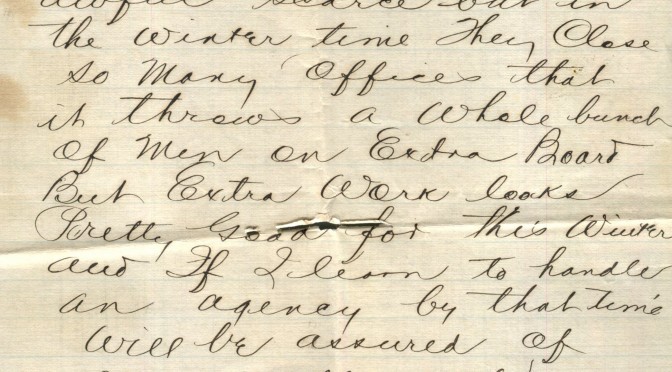 awful scarce but in
the winter time They Close
so Many Offices that
it throws a Whole bunch
Of Men on Extra Board
But Extra Work looks
Pretty Good for this Winter
and If I learn to handle
an agency by that time
Will be assured of